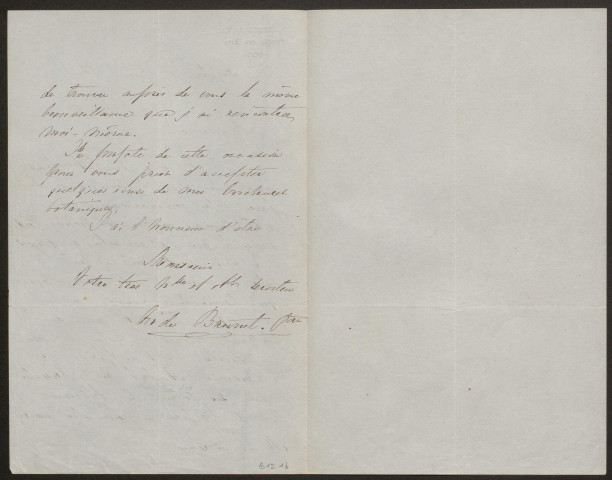 de trouver auprès de vous la même
bienveillance que j'ai rencontrée
moi-même.
Je profite de cette occasion
pour vous prier d'accepter
quelques unes de mes brochures
botaniques.
J'ai l'honneur d'être
Monsieur
Votre très hble et obt serviteur